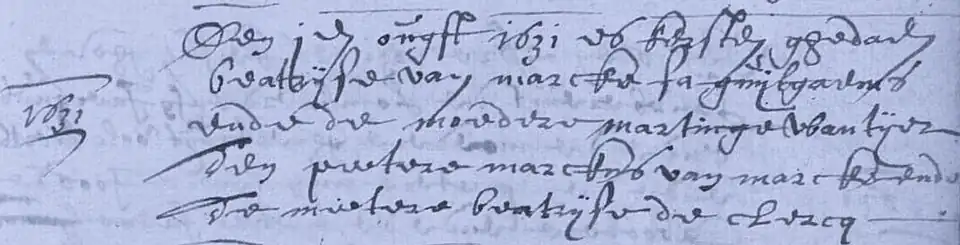 Den j en ougst 1631 es kersten ghedaen
beatryse van marcke fa guilgaems
1631
ende de moedere martinge wantyer
den peetere marckus van marcke ende
de meetere beatryse de clercq